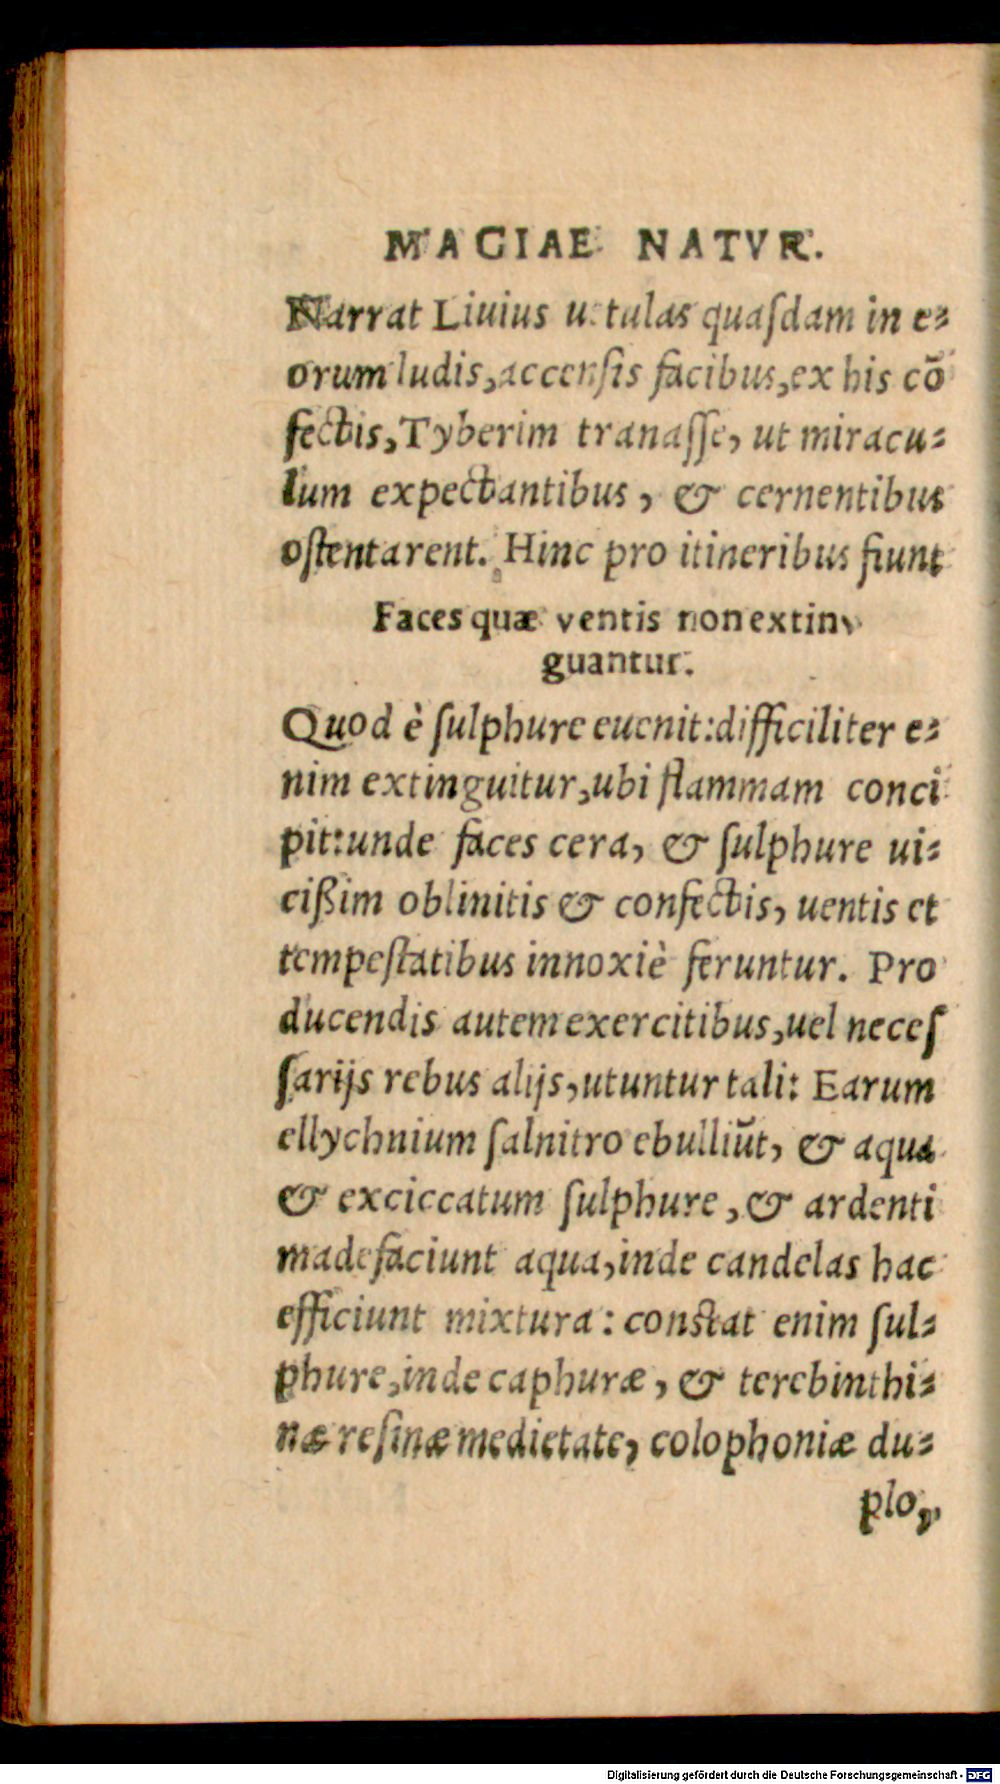 MAGIAE NATVR.
Narrat Liuius uetulas quaſdam in e⸗
orum ludis, accenſis facibus, ex his cõ
fectis, Tyberim tranaſſe, ut miracu⸗
lum expectantibus, & cernentibus
oſtentarent. Hinc pro itineribus fiunt
Faces quæ ventis non extin⸗
guantur.
Quod è ſulphure euenit: difficiliter e⸗
nim extinguitur, ubi flammam conci
pit: unde faces cera, & ſulphure ui⸗
cißim oblinitis & confectis, uentis et
tempeſtatibus innoxiè feruntur. Pro
ducendis autem exercitibus, uel neceſ
ſarijs rebus alijs, utuntur tali: Earum
ellychnium ſalnitro ebulliũt, & aqua
& exciccatum ſulphure, & ardenti
madefaciunt aqua, inde candelas hac
efficiunt mixtura: conſtat enim ſul⸗
phure, inde caphuræ, & terebinthi⸗
næ reſinæ medietate, colophoniæ du⸗
plo,
Digitalisierung gefördert durch die Deutsche Forschungsgemeinschaft - DFG